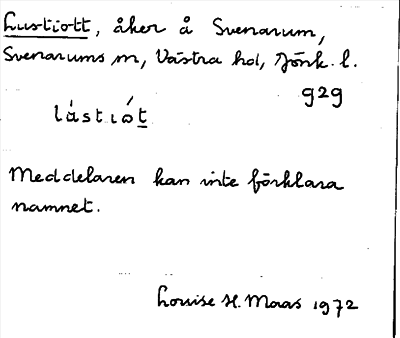 Lustiott, åker å Svenarum,
Svenarums sn, Västra hd, Jönk. l.
929
låstiót
Meddelaren kan inte förklara
namnet.
Louise H. Maas 1972